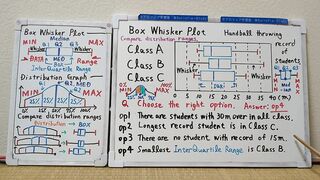 Box Whisker Plot
Median
Q1 Q2 Q3
MIN MAX
Whisker Whisker
DATA MED
Box Range
InterQuartile Range
Distribution Graph
MIN MAX
25% 25% 25% 25%
Compare distribution ranges
Distribution → BOX
Box Whisker Plot
Handball throwing
Compare distribution ranges.
record of students
Class A
Class B
Class C
Whisker
MIN MAX
0 5 10 15 20 25 30 35 40 (m)
Q. Choose the right option. Answer: op4
op1 There are students with 30m over in all class.
op2 Longest record student is in Class C.
op3 There are no student with record of 15m.
op4 Smallest InterQuartile Range is Class B.